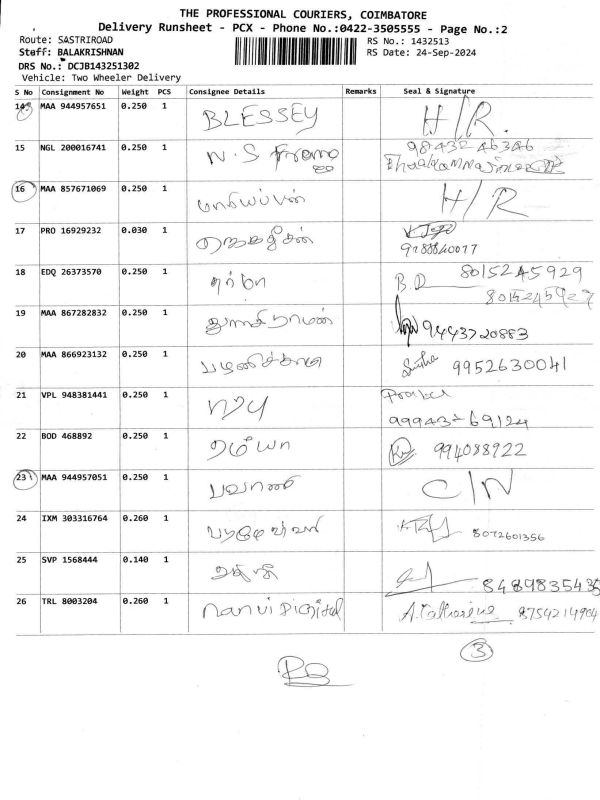 THE PROFESSIONAL COURIERS, COIMBATORE
Delivery Runsheet - PCX - Phone No.:0422-3505555 - Page No.:2
Route: SASTRIROAD
RS No.: 1432513
Staff: BALAKRISHNAN
RS Date: 24-Sep-2024
DRS No.: DCJB143251302
Vehicle: Two Wheeler Delivery
S No Consignment No Weight PCS Consignee Details Remarks Seal & Signature
14 MAA 944957651 0.250 1 BLESSEY H/R.
15 NGL 200016741 0.250 1 N.S 98432 46346
16 MAA 857671069 0.250 1 மாரியப்பன் H/R
17 PRO 16929232 0.030 1 ஜெகதீசன்
18 EDQ 26373570 0.250 1 B.D 8015245929
8015245929
19 MAA 867282832 0.250 1 துளசிராமன் 9443720883
20 MAA 866923132 0.250 1 9952630041
21 VPL 948381441 0.250 1
99943-69124
22 BOD 468892 0.250 1 ரம்யா 994088922
23 MAA 944957051 0.250 1 பவானி C/N
24 IXM 303316764 0.260 1 8072601356
25 SVP 1568444 0.140 1 8489835435
26 TRL 8003204 0.260 1 Nanvi Digital A. Catherine 8754214904
3